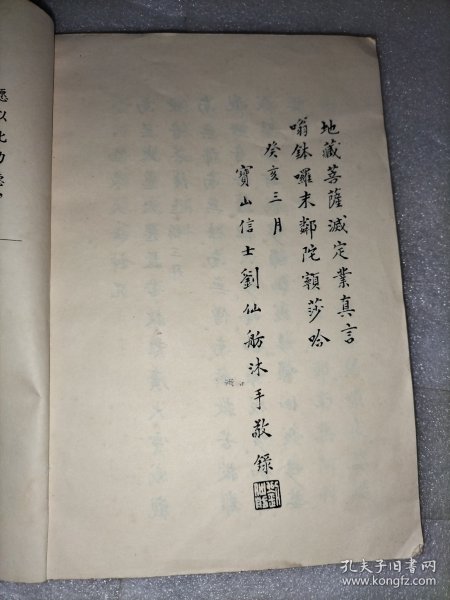 地藏菩薩滅定業真言
嗡鉢囉末鄰陀顆莎哈
癸亥三月
寶山信士劉仙舫沐手敬錄
願以此功德
孔夫子旧书网
www.kongfz.com